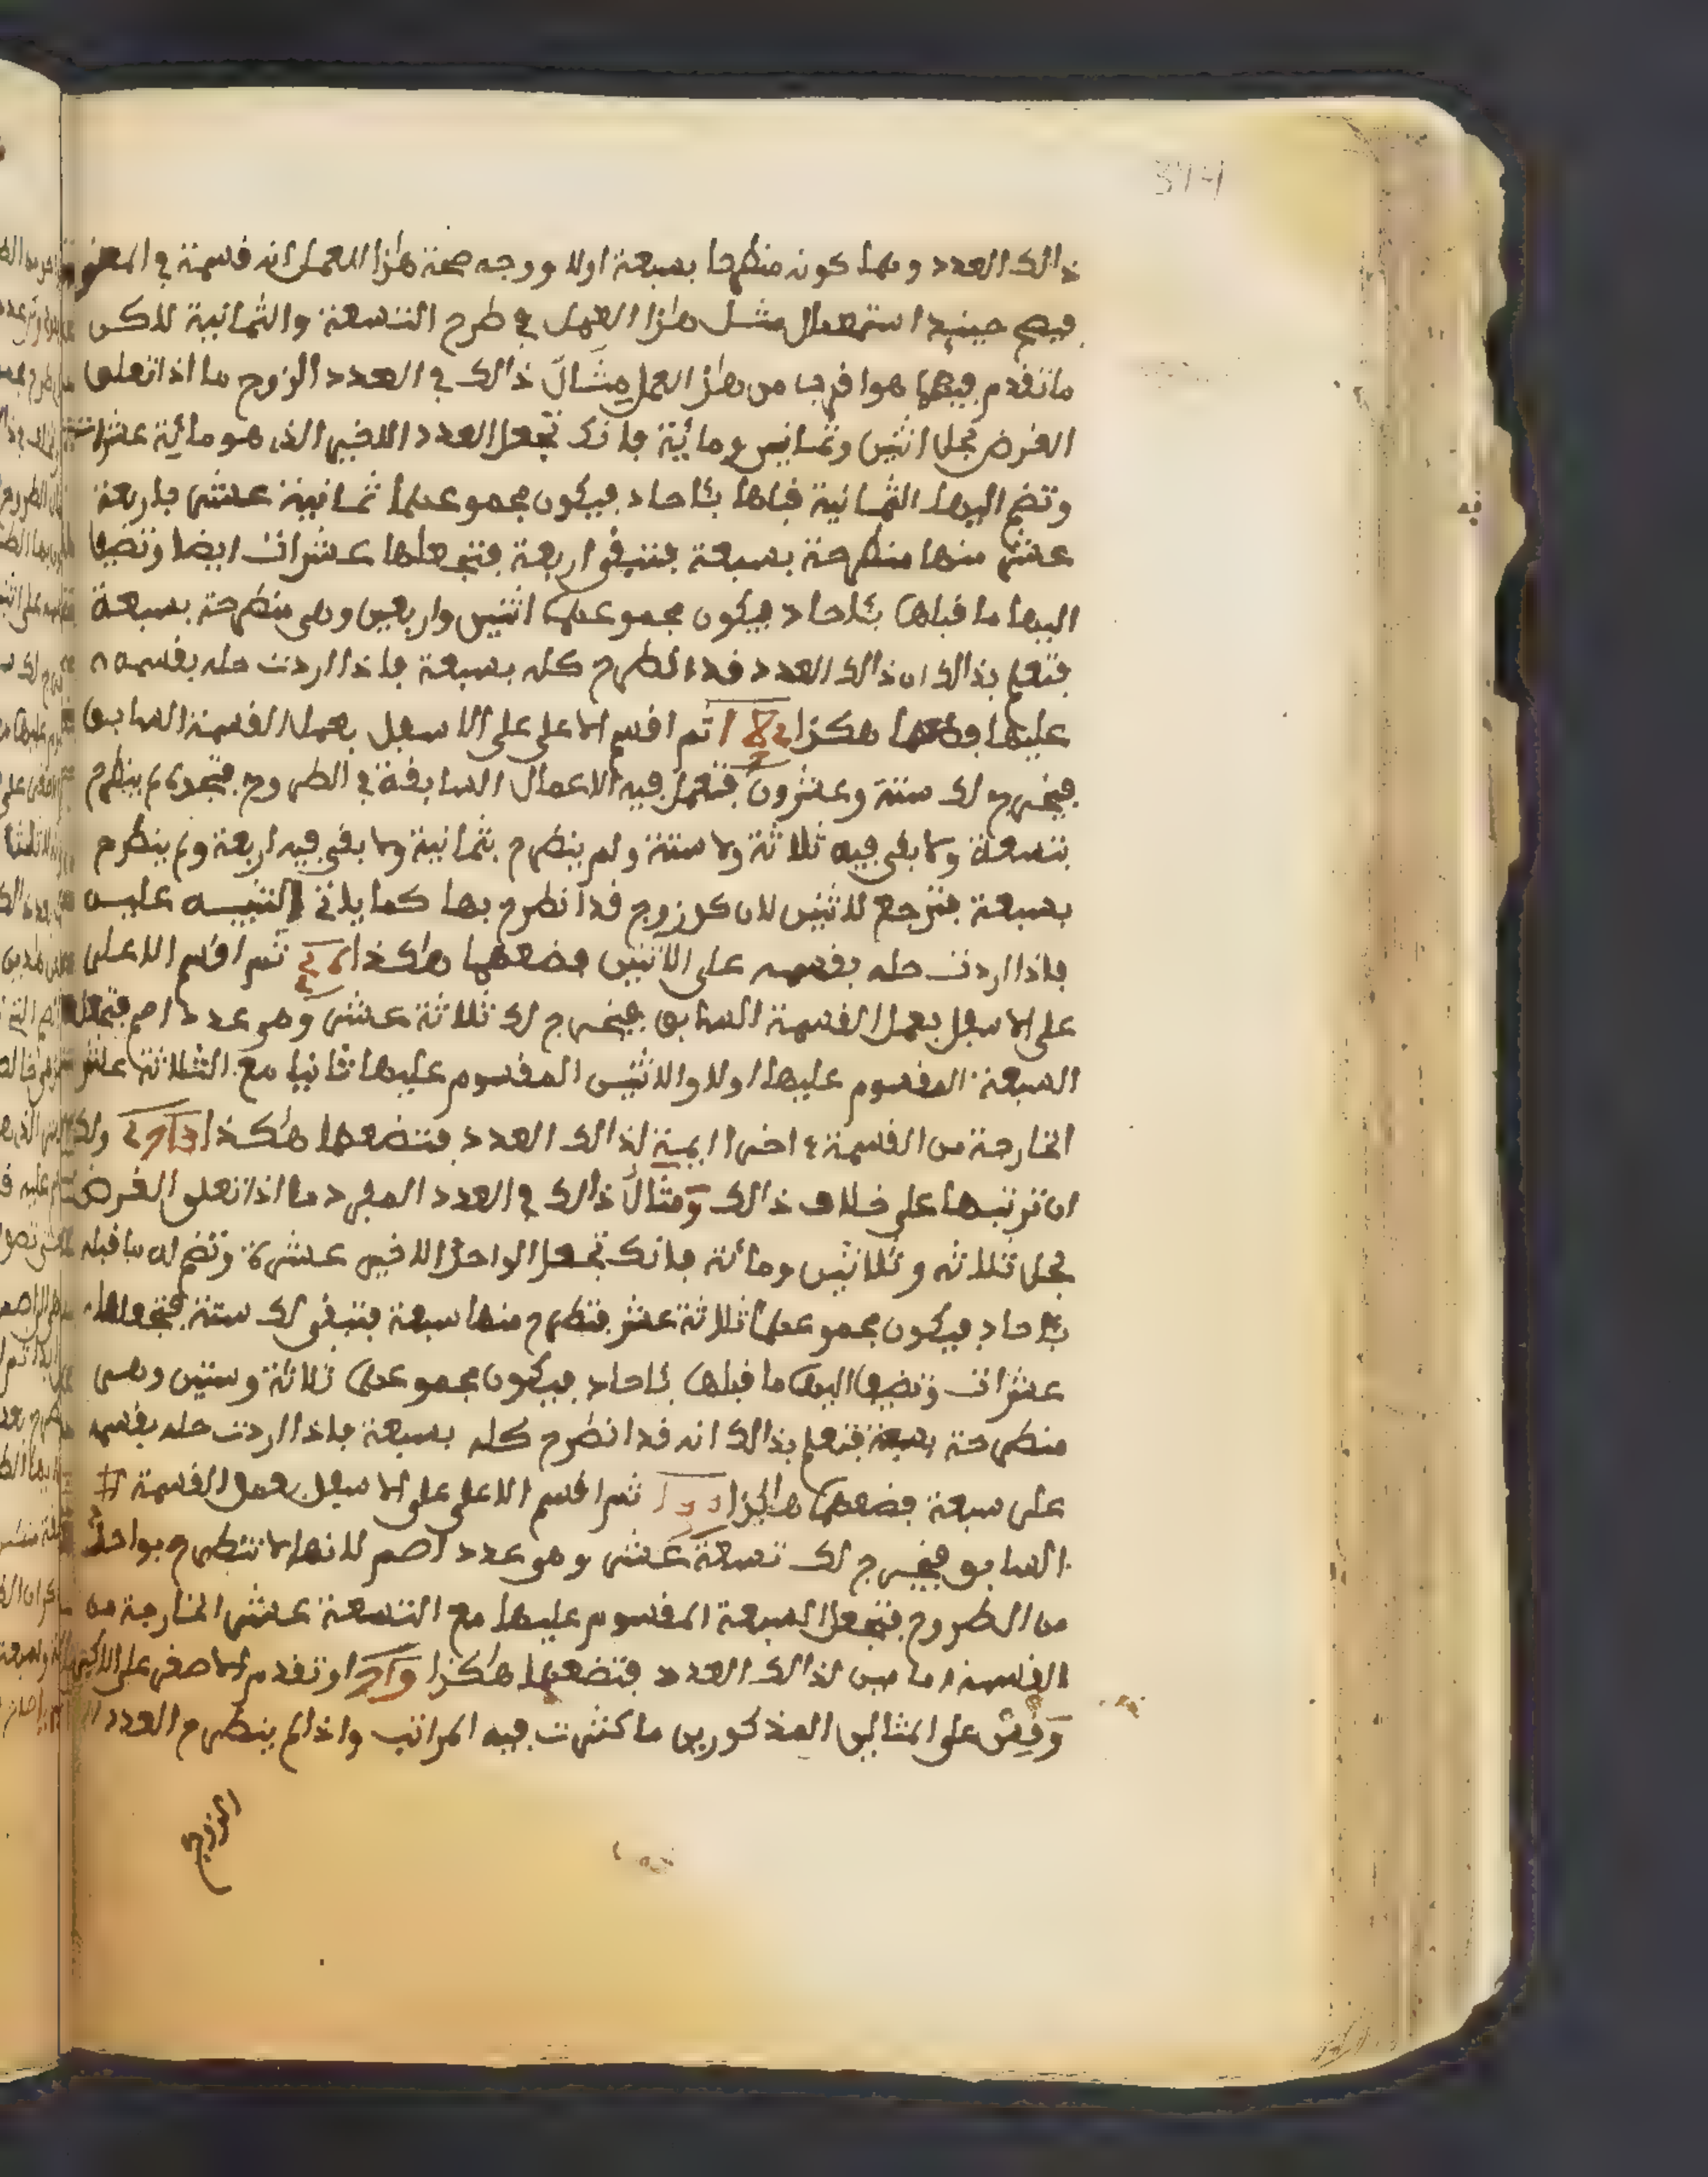 314
ذالك العدد وبها كونه منطرحا بسبعة اولا ووجه صحة هذا العمل انه قسمة في المعنى
فيصح حينيذ استعمال مثل هذا العمل في طرح التسعة والثمانية لاكن
ما تقدم فيهما هو اقرب من هذا العمل مثال ذالك في العدد الزوج ما اذا تعلق
الغرض بحل اثنين وثمانين ومائية فانك تجعل العدد الاخير الذى هو مائية عشرات
وتضم اليها الثمانية قبلها بئاحاد فيكون مجموعهما ثمانية عشر فاربعة
عشر منها منطرحة بسبعة فتبقى اربعة فتجعلها عشرات ايضا وتضيف
اليها ما قبلها بئاحاد فيكون مجموعهما اثنين واربعين وهى منطرحة بسبعة
فتعلم بذالك ان ذالك العدد قد انطرح كله بسبعة فاذا اردت حله بقسمه
عليها فضعهما هكذا 182 ثم اقسم الاعلى على الاسفل بعمل القسمة السابق
فيخرج لك ستة وعشرون فتعمل فيه الاعمال السابقة في الطروح فتجده لم ينطرح
بتسعة ولا بقى فيه ثلاثة ولا ستة ولم ينطرح بثمانية ولا بقى فيه اربعة ولم ينطرح
بسبعة فترجع للاثنين لان كل زوج قد انطرح بها كما ياتى التنبيه عليه
فاذا اردت حله بقسمه على الاثنين فضعهما هكذا 26 ثم اقسم الاعلى
على الاسفل بعمل القسمة السابق فيخرج لك ثلاثة عشر وهو عدد اصم فتجعل
السبعة المقسوم عليها اولا والاثنين المقسوم عليها ثانيا مع الثلاثة عشر
الخارجة من القسمة اخرا ايمة لذالك العدد فتضعها هكذا 2 7 13 ولك
ان ترتبها على خلاف ذالك ومثال ذالك في العدد المفرد ما اذا تعلق الغرض
بحل ثلاثة وثلاثين ومائة فانك تجعل الواحد الاخير عشرة وتضم له ما قبله
بئاحاد فيكون مجموعهما ثلاثة عشر فتطرح منها سبعة فتبقى لك ستة فتجعلها
عشرات وتضيف اليها ما قبلها بئاحاد فيكون مجموعهما ثلاثة وستين وهى
منطرحة بسبعة فتعلم بذالك انه قد انطرح كله بسبعة فاذا اردت حله بقسمه
على سبعة فضعهما هاكذا 133 ثم اقسم الاعلى على الاسفل بعمل القسمة
السابق فيخرج لك تسعة عشر وهو عدد اصم لانها لا تنطرح بواحد
من الطروح فتجعل السبعة المقسوم عليها مع التسعة عشر الخارجة من
القسمة امامين لذالك العدد فتضعهما هكذا 7 19 وتقدم الاصغر على الاكبر
وقس على المثالين المذكورين ما كثرت فيه المراتب واذا لم ينطرح العدد
الزوج